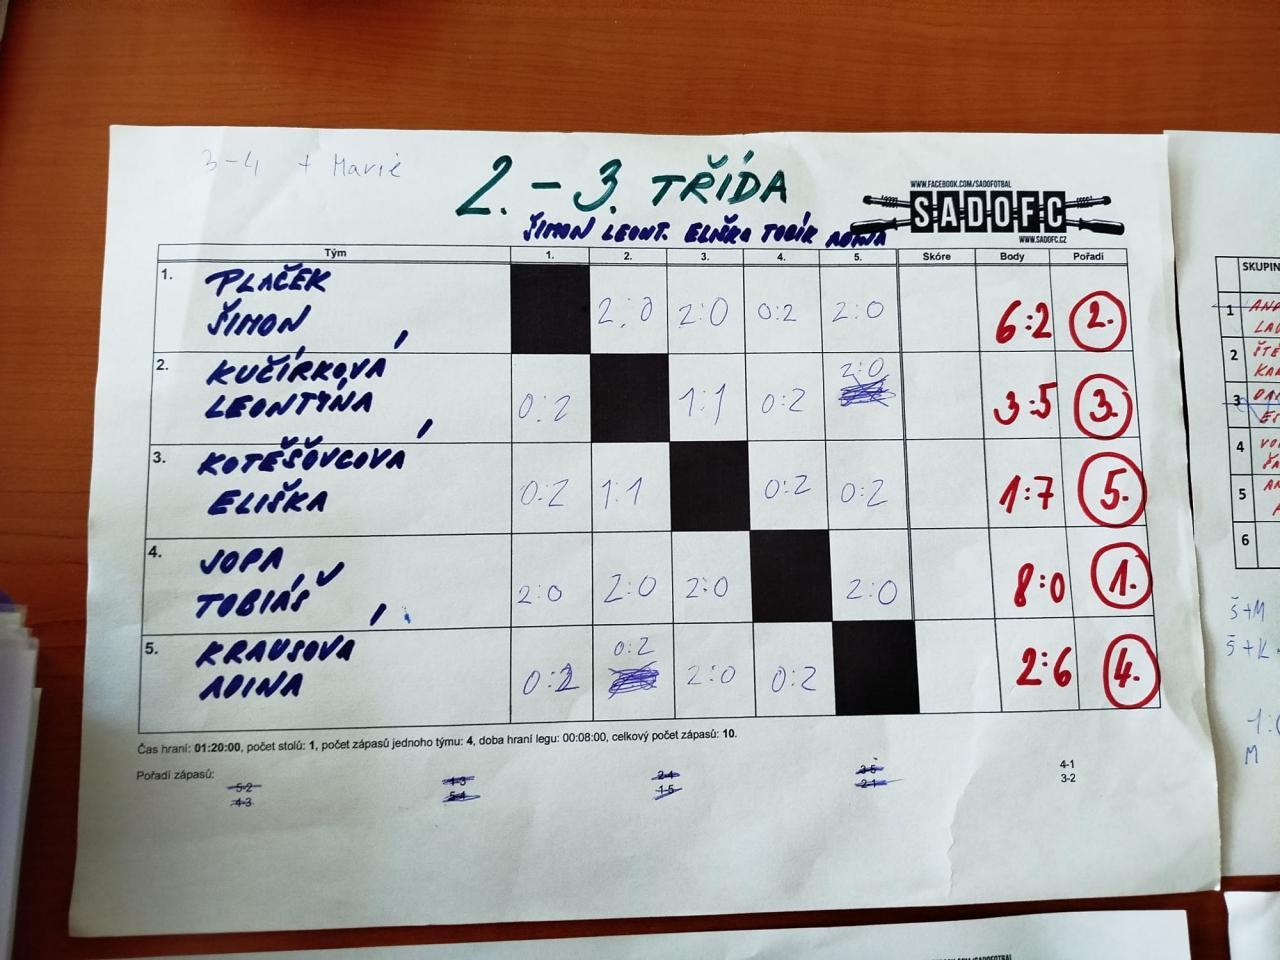 3-4 + Marie
2.-3. TŘÍDA
WWW.FACEBOOK.COM/SADOFOTBAL
SADOFC
WWW.SADOFC.CZ
ŠIMON LEONT. ELIŠKA TOBIK ADINA
Tým 1. 2. 3. 4. 5. Skóre Body Pořadí
1. PLAČEK
ŠIMON 2:0 2:0 0:2 2:0 6:2 2.
2. KUČÍRKOVÁ 2:0
LEONTÝNA 0:2 1:1 0:2 3:5 3.
3. KOTĚŠOVCOVÁ
ELIŠKA 0:2 1:1 0:2 0:2 1:7 5.
4. JOPA
TOBIÁŠ 2:0 2:0 2:0 2:0 8:0 1.
5. KRAUSOVÁ 0:2
ADINA 0:2 2:0 0:2 2:6 4.
Čas hraní: 01:20:00, počet stolů: 1, počet zápasů jednoho týmu: 4, doba hraní legu: 00:08:00, celkový počet zápasů: 10.
Pořadí zápasů:
5-2 1-3 2-4 3-5 4-1
4-3 5-4 1-5 2-1 3-2
SKUPIN
1
2
3
4
5
6
Š+M
Š+K
M